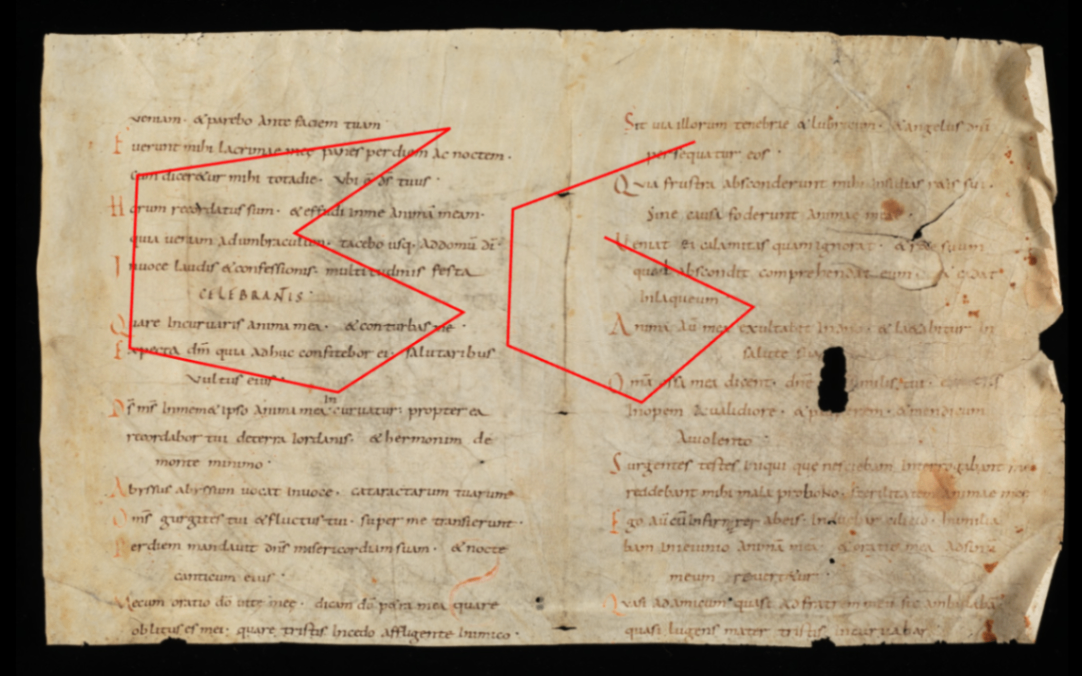 ueniam · & parebo ante faciem tuam
Fuerunt mihi lacrimae meę panes per diem ac noctem ·
dum mihi totadie · ubi tuus ·
Horum recordatus sum · & effudi inme animā meam ·
quia ueniam adumbraculum · tacebo usq; addomū dī
Inuoce laudis & confessionis · multitudinis festa
CELEBRANTIS ·
Quare Incuruaris anima mea · & conturbas me ·
Expecta dm̄ quia adhuc confitebor ei · salutaribus
uultus eius ·
Dš mš Inmemetipso anima mea Incuruatur · propterea
recordabor tui deterra Iordanis · & hermonim de
monte minimo ·
Abyssus abyssum uocat Inuoce · cataractarum tuarum
Omš gurgites tui & fluctus tui · super me transierunt ·
Perdiem mandauit dnš misericordiam suam · & nocte
canticum eius ·
Mecum oratio dō uitę meę · dicam dō petra mea quare
oblitus es mei · quare tristis Incedo affligente Inimico ·
Sit uia illorum tenebrae & lubricum · & angelus dnī
persequatur eos ·
Quia frustra absconderunt mihi Insidias
sine causa foderunt animae
Ueniat ei calamitas quam ignorat · & suum
quod abscondit comprehendat eum ·
Inlaqueum
Anima aū mea exultabit Indn̄o & laetabitur In
salute
Omā ossa mea dicent · dnē similis tui ·
Inopem & ualidiore · & &mendicum
auiolento ·
Surgentes testes Iniqui que nesciebam · Interrogabant me
reddebant mihi mala probono · sterilitatem animae meę
Ego aū cū Infirmarer abeis · Induebar cilicio · humilia
bam Inieiunio animā mea · & oratio mea adsinū
meum reuertetur ·
Quasi adamicum quasi adfratrem meū sic ambulaba
quasi lugens mater tristis Incuruabar